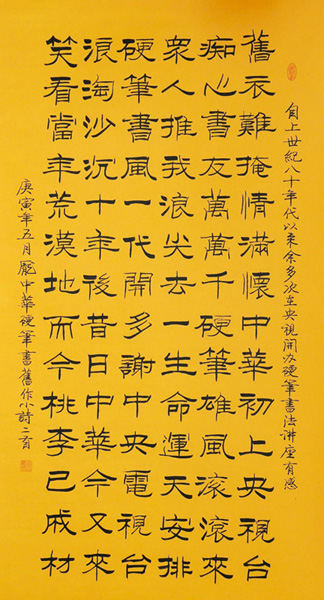 自上世紀八十年代以来余多次在央視開办硬筆書法講座有感
舊衣難掩情滿懷中華初上央視台
痴心書友萬萬千硬筆雄風滾滾來
眾人推我浪尖去一生命運天安排
硬筆書風一代開多謝中央電視台
浪淘沙沉十年後昔日中華今又來
笑看當年荒漠地而今桃李已成材
庚寅年五月龐中華硬筆書舊作小詩二首